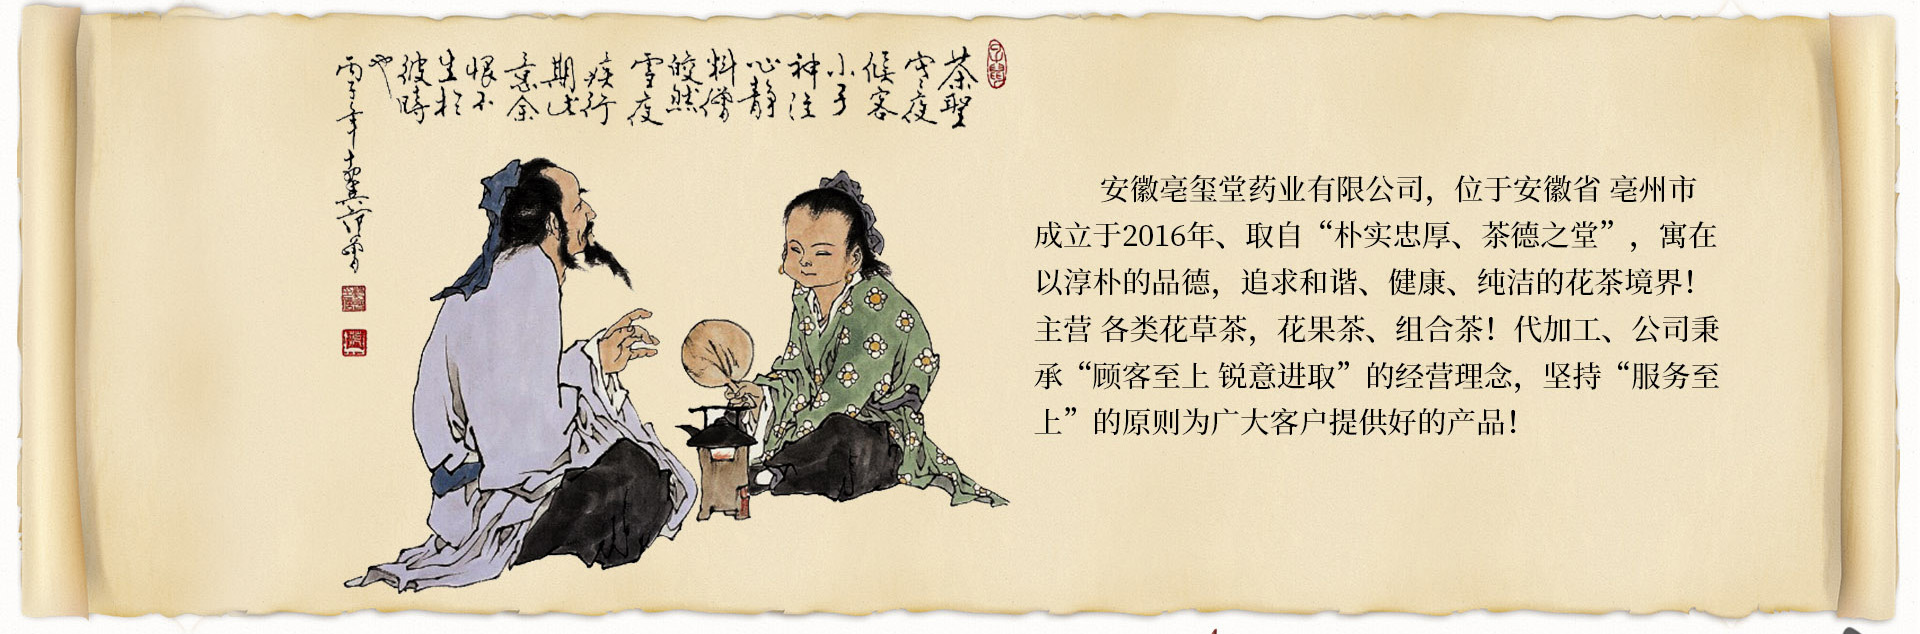 茶聖
寒夜
候客
小子
神注
心静
料僧
皎然
雪夜
疾行
期此
意余
恨不
生於
彼時
也
丙子年十翼范曾
安徽亳玺堂药业有限公司，位于安徽省 亳州市
成立于2016年、取自“朴实忠厚、茶德之堂”，寓在
以淳朴的品德，追求和谐、健康、纯洁的花茶境界！
主营 各类花草茶，花果茶、组合茶！代加工、公司秉
承“顾客至上 锐意进取”的经营理念，坚持“服务至
上”的原则为广大客户提供好的产品！